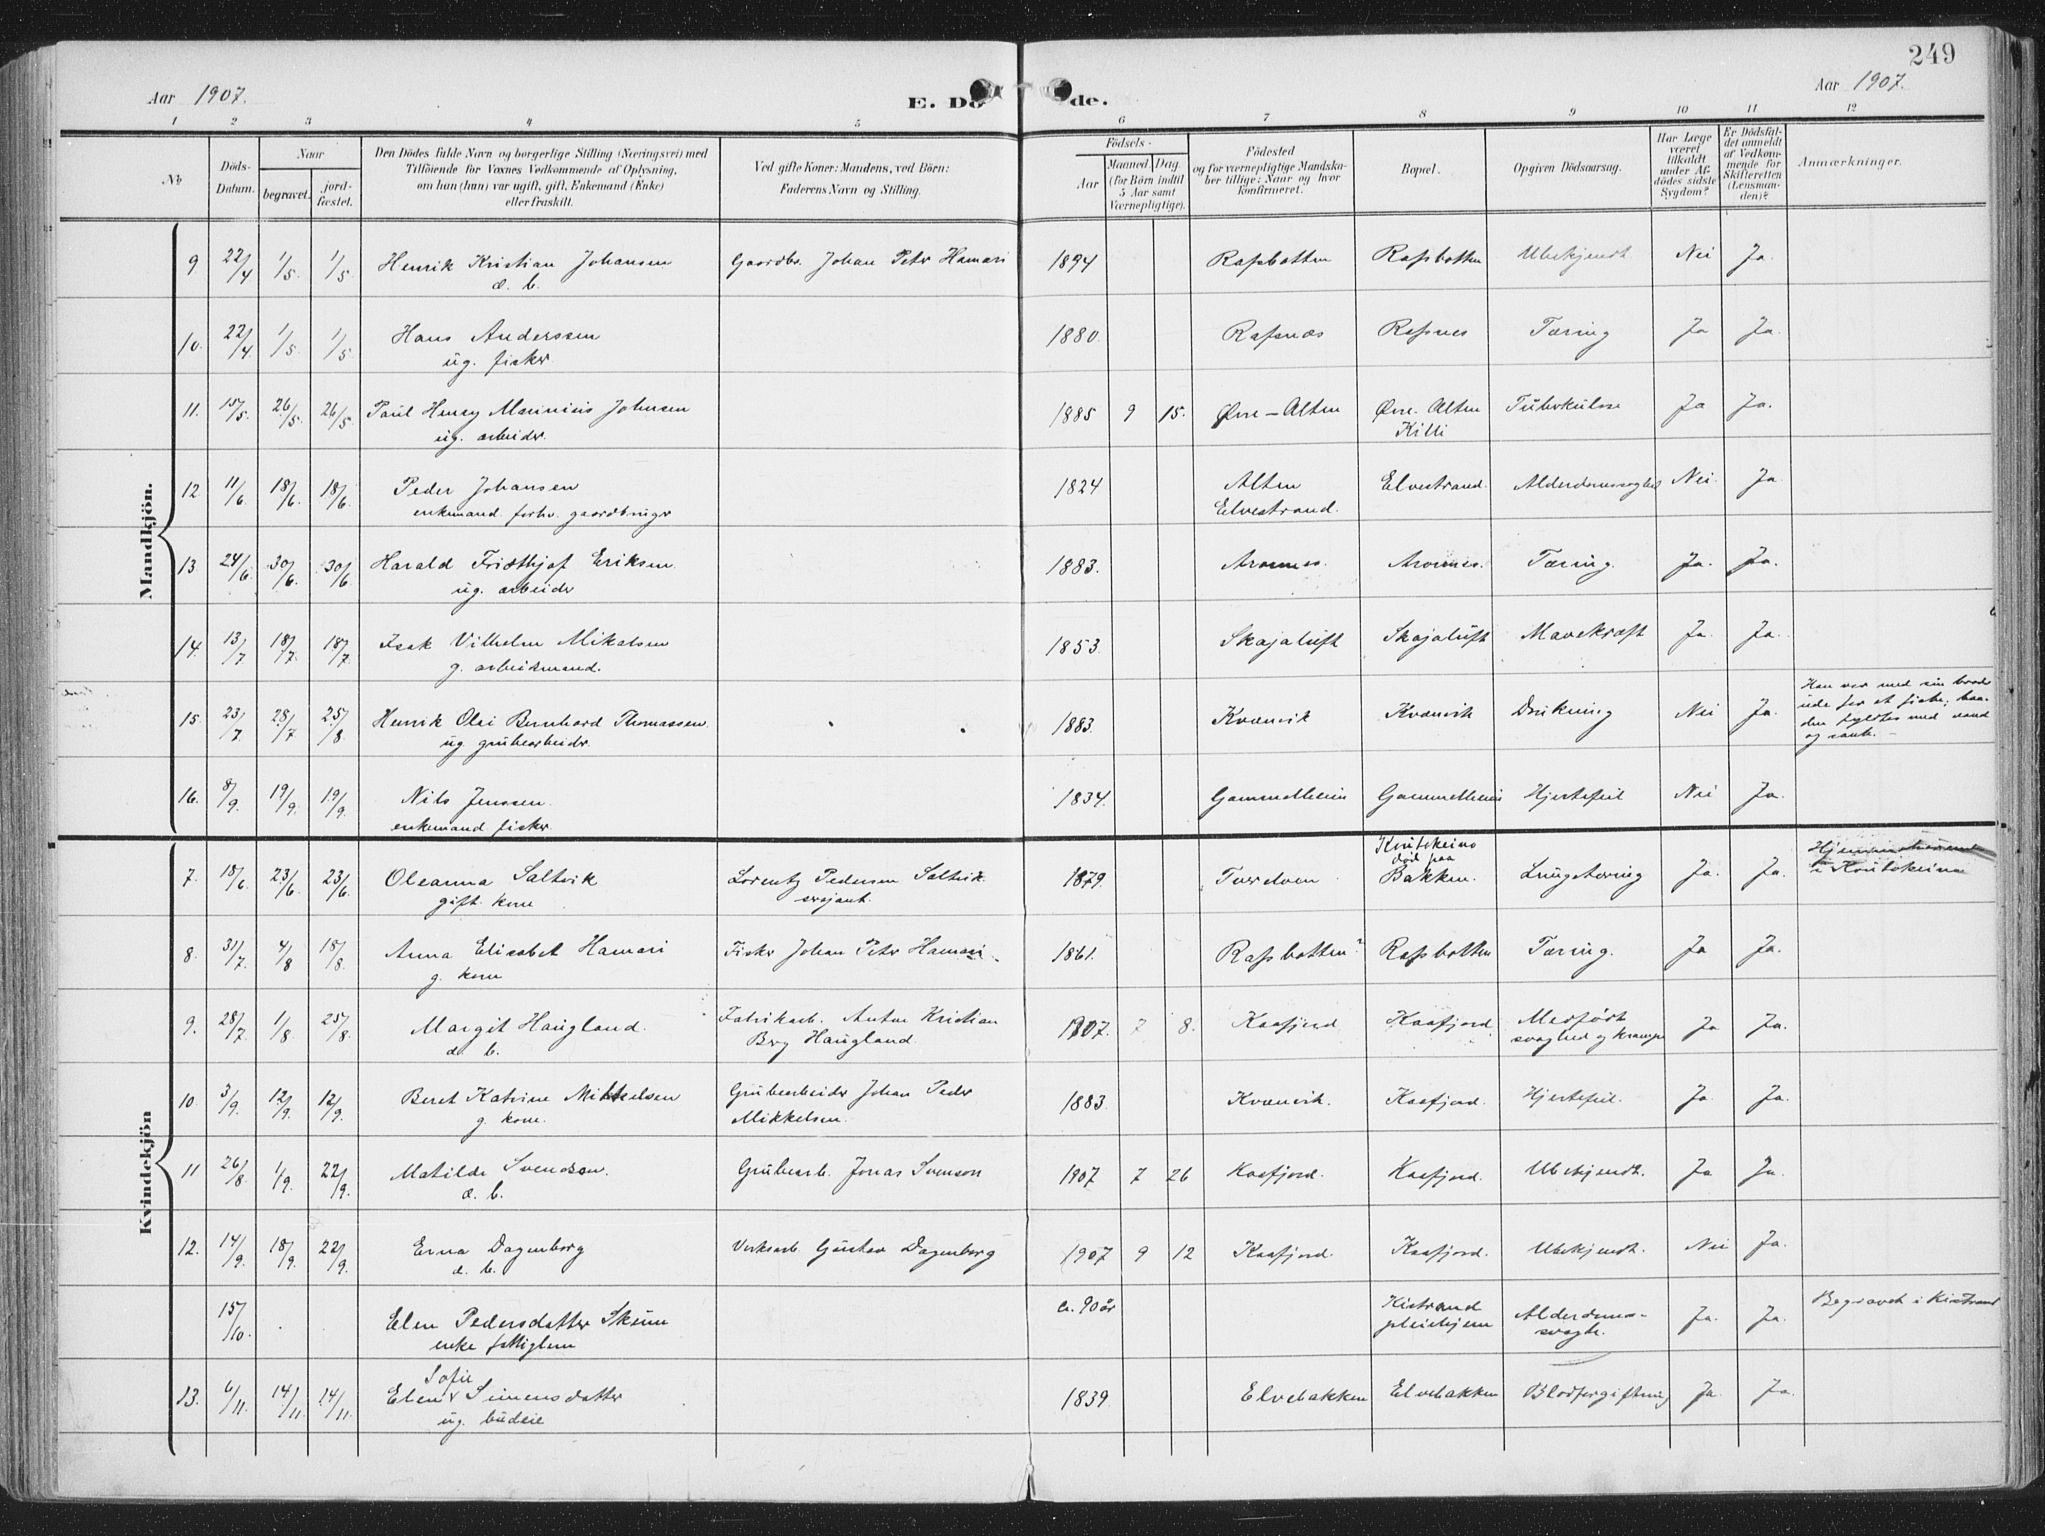 249
Aar 1907.
E. Dö de.
Aar 1907.
1 2 3 4 5 6 7 8 9 10 11 12
No
Döds-
Datum.
Naar
begravet.
jord-
fæstet.
Den Dödes fulde Navn og borgerlige Stilling (Næringsvei) med
Tilföiende for Voxnes Vedkommende af Oplysning,
om han (hun) var ugift, gift, Enkemand (Enke)
eller fraskilt.
Ved gifte Koner: Mandens, ved Börn:
Faderens Navn og Stilling.
Födsels-
Aar
Maaned Dag.
(for Börn indtil
5 Aar samt
Værnepligtige).
Födested
og for værnepligtige Mandska-
ber tillige: Naar og hvor
konfirmeret.
Bopæl.
Opgiven Dödsaarsag.
Har Læge
været
tilkaldt
under Af-
dödes sidste
Sygdom?
Er Dödsfal-
det anmeldt
af Vedkom-
mende for
Skifteretten
(Lensman-
den)?
Anmærkninger.
Mandkjön.
9 22/4 1/5 1/5 Henrik Kristian Johansen Gaardbr. Johan Peter Hamari 1894 Rafsbotten Rafsbotten Ubekjendt Nei Ja.
d. b.
10. 22/4 1/5 1/5 Hans Anderssen 1880. Rafsnæs Rafsnes Tæring Ja Ja.
ug. fisker
11. 15/5. 26/5 26/5 Paul Henry Marinius Johnsen 1885 9 15. Øvre-Alten Øvre-Alten Tuberkulose Ja Ja.
ug. arbeider. Killi
12. 11/6 18/6. 18/6. Peder Johansen 1824 Alten Elvestrand. Alderdomssvaghed Nei. Ja.
enkemand. forhv. gaardbruger Elvestrand.
13. 24/6. 30/6. 30/6 Harald Fridthjof Eriksen 1883. Aronnes. Aronnes. Tæring. Ja. Ja.
ug. arbeider
14. 13/7 18/7. 18/7. Isak Vilhelm Mikalsen 1853. Skajaluft Skajaluft Mavekræft Ja. Ja.
g. arbeidsmand.
15. 23/7 28/7 25/8 Henrik Olai Bernhard Thomassen. 1883. Kvænvik Kvænvik Drukning Nei Ja.
ug grubearbeider.
Han var med sin broder
ude for at fiske; baa-
den fyldtes med vand
og sank. –
16. 8/9. 19/9. 19/9. Nils Jenssen. 1834. Gammelheim Gammelheim Hjertefeil Nei Ja.
enkemand fisker.
Kvindekjön
7. 18/6. 23/6. 23/6. Oleanna Saltvik Lorentz Pedersen Saltvik. 1879. Tverelven Kautokeino
død paa
Bakken. Lungetæring Ja. Ja.
gift. kone sersjant.
i Kautokeino
8. 31/7. 4/8 18/8. Anna Elisabet Hamari Fisker Johan Peter Hamari. 1861. Rafsbotten? Rafsbotten Tæring. Ja Ja.
g. kone
9. 28/7 1/8 25/8. Margit Haugland. Fabrikarb. Anton Kristian 1907. 7 8. Kaafjord Kaafjord. Medfødt Ja Ja.
d. b. Berg Haugland. svaghed og krampe
10. 3/9. 12/9. 12/9. Beret Katrine Mikkelsen Grubearbeider Johan Peder 1883. Kvænvik. Kaafjord. Hjertefeil. Ja. Ja.
g. kone. Mikkelsen.
11 26/8 1/9. 22/9. Matilde Svendsen. Grubearb. Jonas Svenson 1907 7 26 Kaafjord. Kaafjord. Ubekjendt. Ja Ja.
d. b.
12. 14/9. 18/9. 22/9. Erna Dagenborg Verksarb. Gustav Dagenborg 1907 9 12 Kaafjord. Kaafjord. Ubekjendt. Nei Ja.
d. b.
15/10. Elen Pedersdatter Skum c. 90 år Kistrand Alderdoms- Ja. Ja. Begravet i Kistrand
enke fattiglem pleiehjem svagh.
Sofie
13. 6/11. 14/11. 14/11. Elen Simensdatter 1839 Elvebakken Elvebakken Blodforgiftning Ja. Ja.
ug. budeie